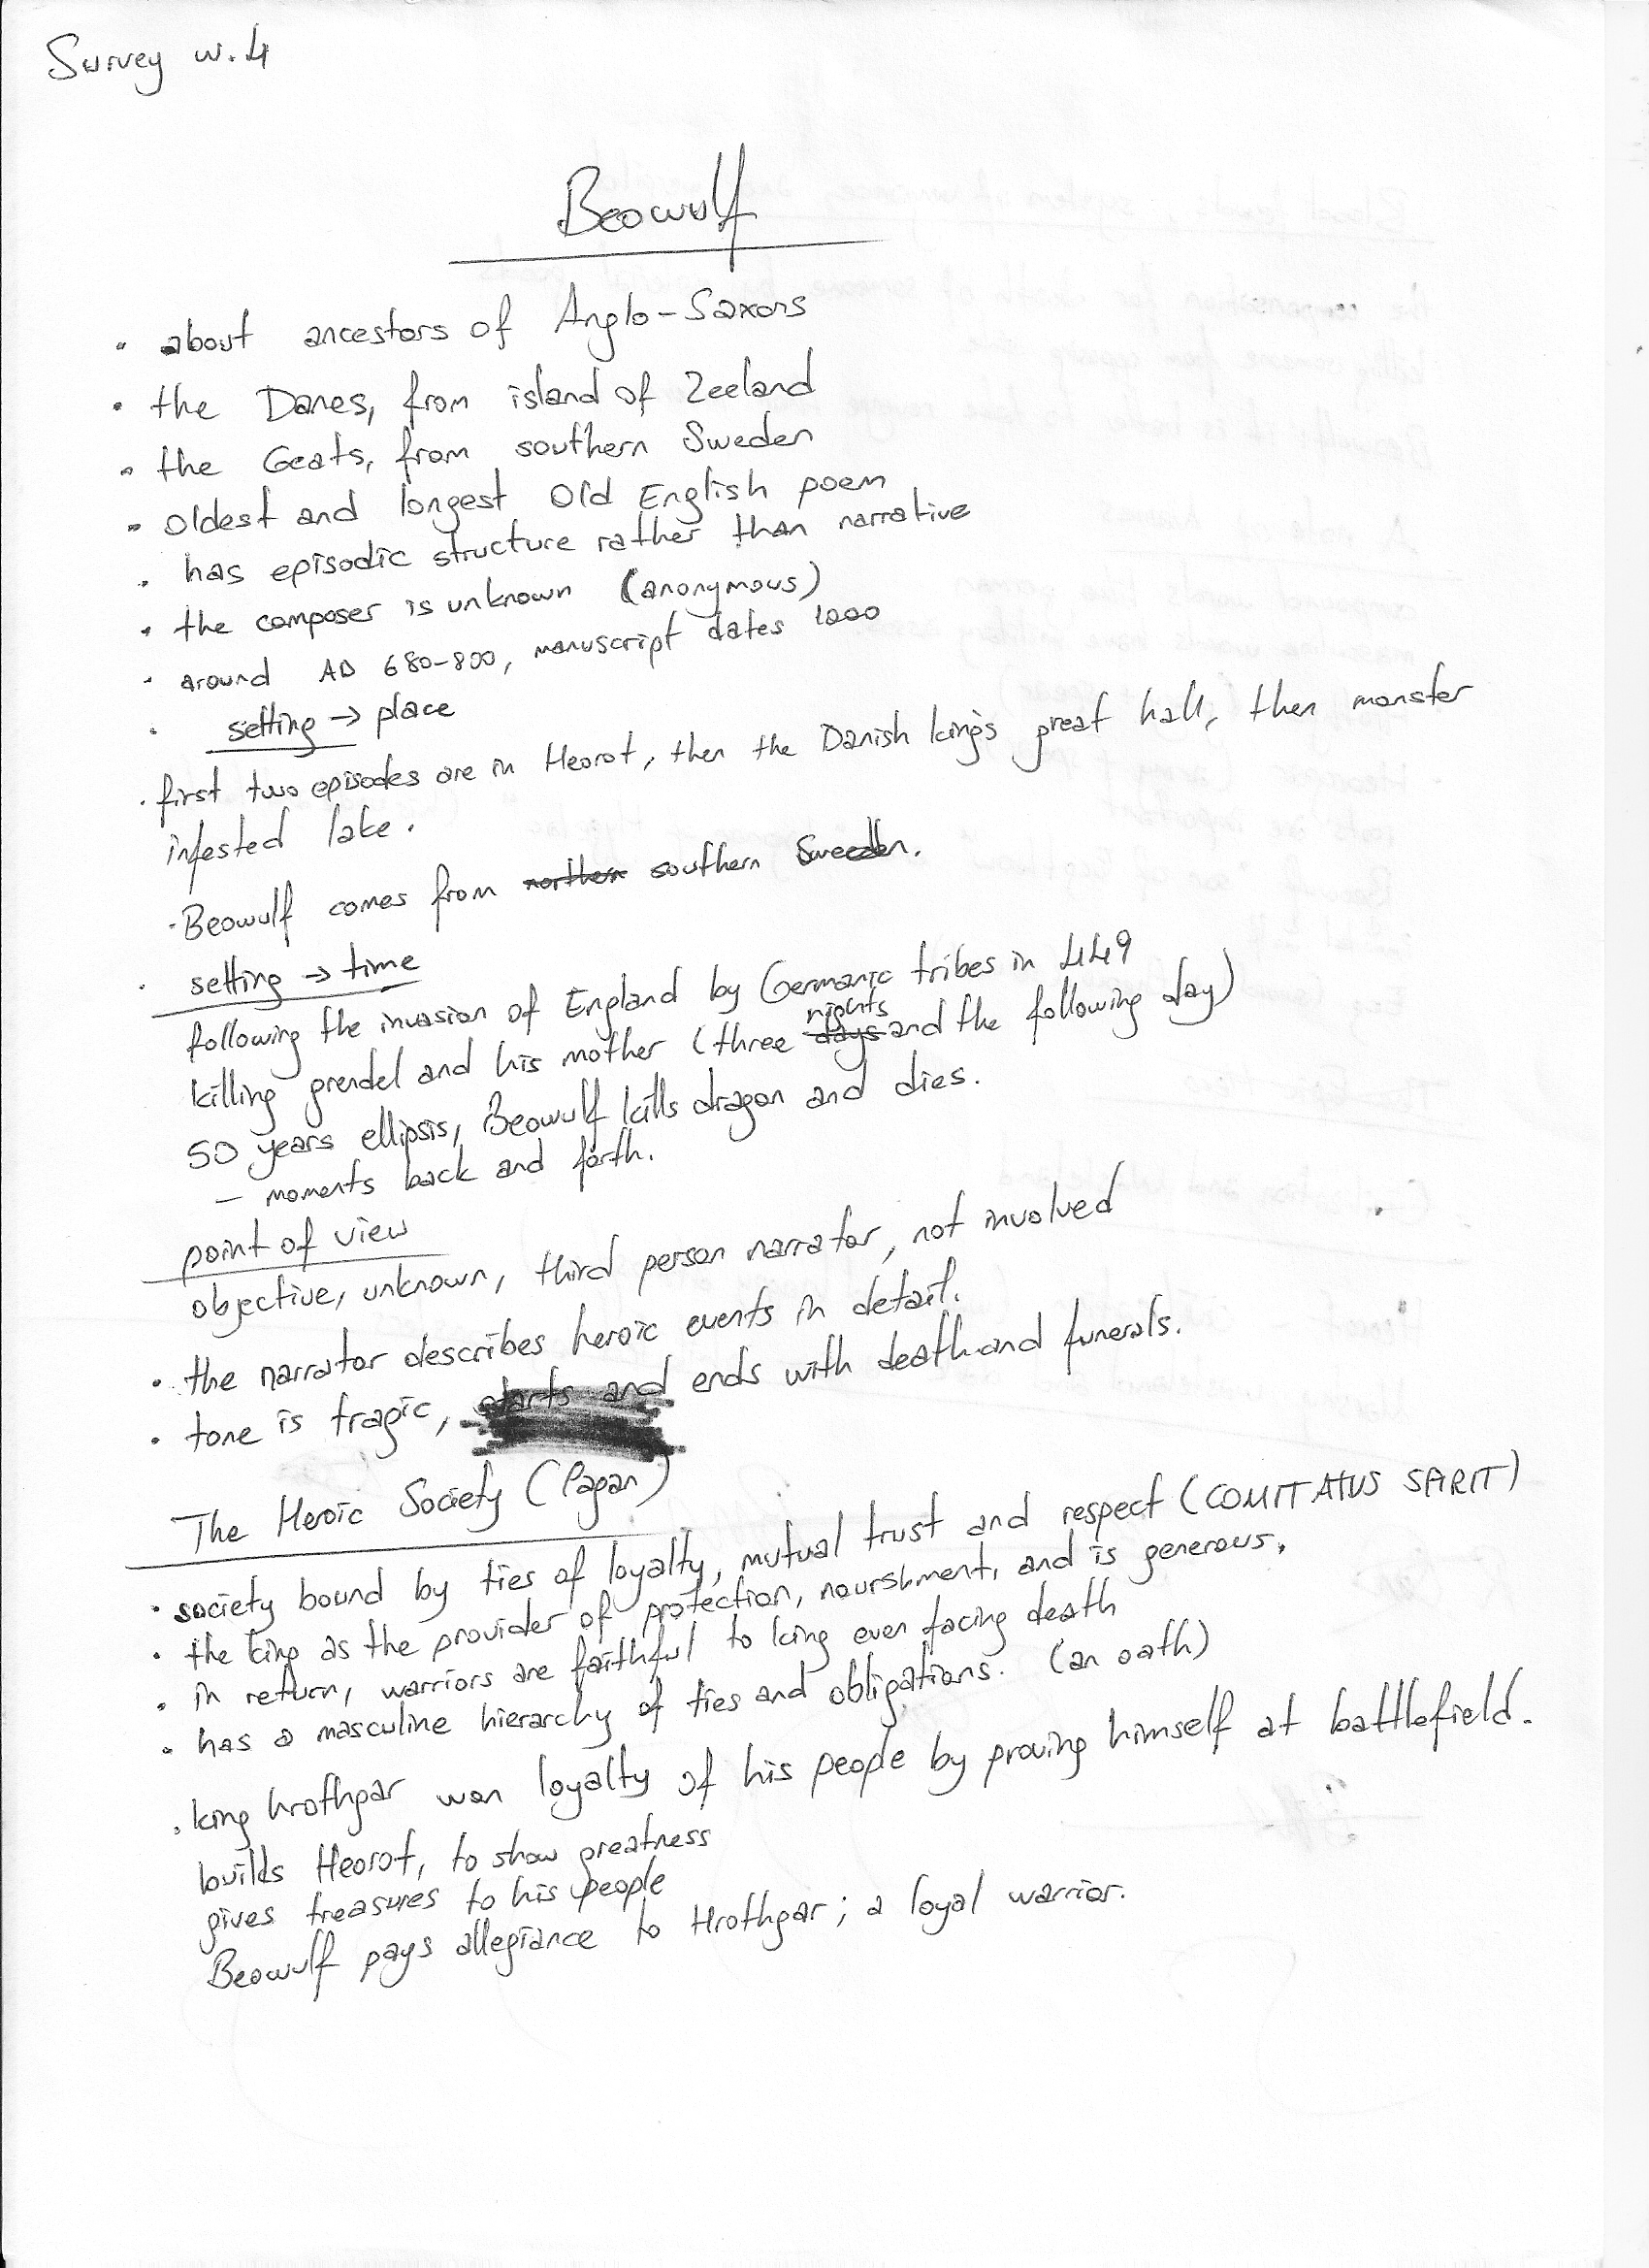 Survey w.4
Beowulf
• about ancestors of Anglo-Saxons
• the Danes, from island of Zeeland
• the Geats, from southern Sweden
• oldest and longest Old English poem
• has episodic structure rather than narrative
• the composer is unknown (anonymous)
• around AD 680-800, manuscript dates 1000
• setting → place
• first two episodes are in Heorot, then the Danish king's great hall, then monster
infested lake.
• Beowulf comes from northern southern Sweden.
• setting → time
following the invasion of England by Germanic tribes in 449
nights
killing grendel and his mother (three days and the following day)
50 years ellipsis, Beowulf kills dragon and dies.
- moments back and forth.
point of view
objective, unknown, third person narrator, not involved
• the narrator describes heroic events in detail.
• tone is tragic, starts and ends with death and funerals.
The Heroic Society (Pagan)
• society bound by ties of loyalty, mutual trust and respect (COMITATUS SPIRIT)
• the king as the provider of protection, nourishment, and is generous.
• in return, warriors are faithful to king even facing death
• has a masculine hierarchy of ties and obligations. (an oath)
• king hrothgar won loyalty of his people by proving himself at battlefield.
builds Heorot, to show greatness
gives treasures to his people
Beowulf pays allegiance to Hrothgar; a loyal warrior.